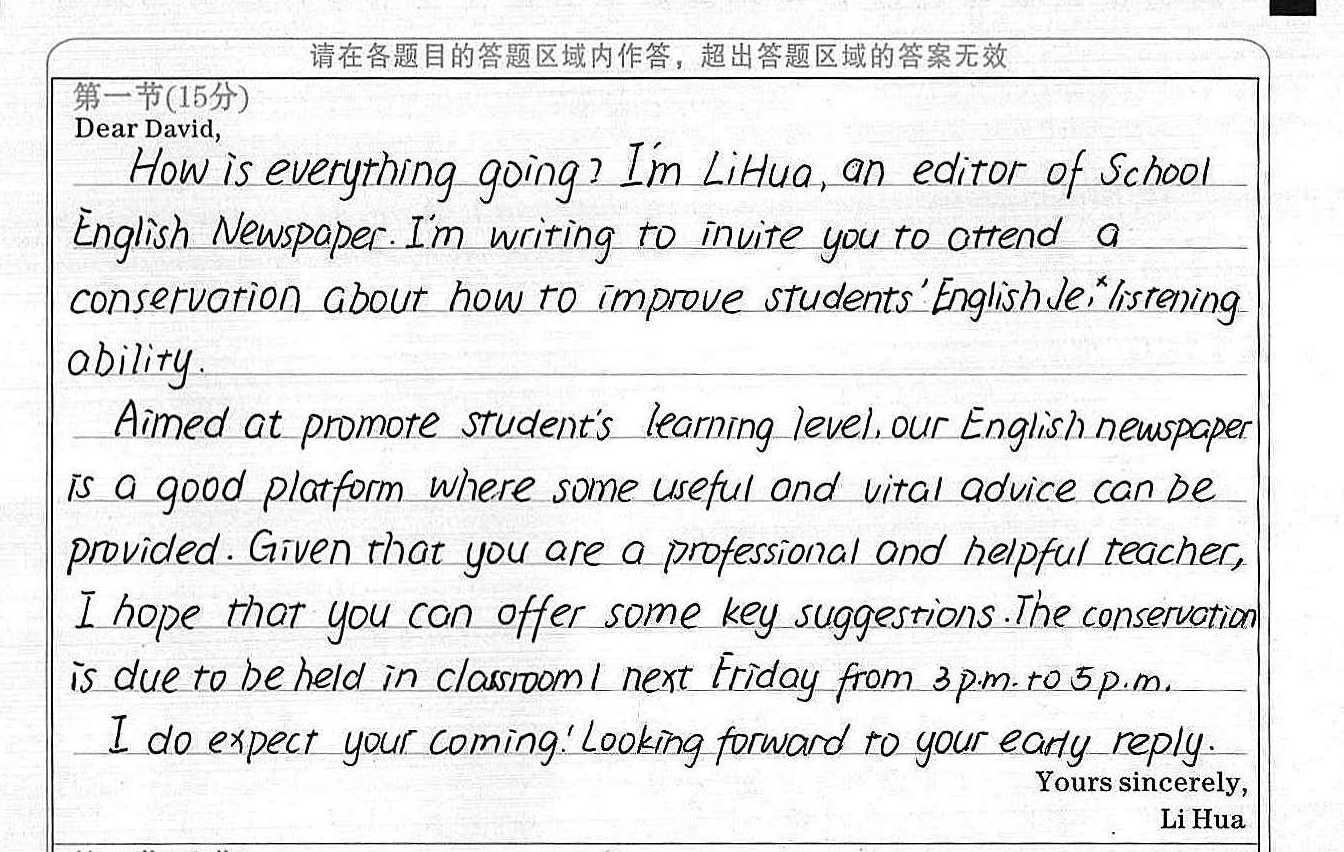 请在各题目的答题区域内作答，超出答题区域的答案无效
第一节(15分)
Dear David,
How is everything going? I'm LiHua, an editor of School
English Newspaper. I'm writing to invite you to attend a
conservation about how to improve students' English listening
ability.
Aimed at promote student's learning level, our English newspaper
is a good platform where some useful and vital advice can be
provided. Given that you are a professional and helpful teacher,
I hope that you can offer some key suggestions. The conservation
is due to be held in classroom 1 next Friday from 3 p.m. to 5 p.m.
I do expect your coming! Looking forward to your early reply.
Yours sincerely,
Li Hua